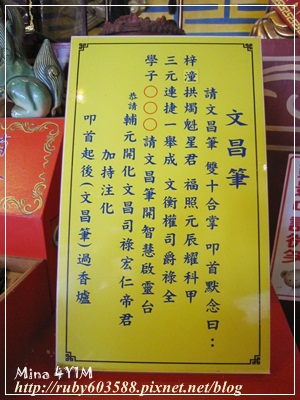 文昌筆
請文昌筆 雙十合掌 叩首默念曰：
梓潼拱燭魁星君 福照元辰耀科甲
三元連捷一舉成 文衡權司爵祿全
學子○○○請文昌筆開智慧啟靈台
恭請 輔元開化文昌司祿宏仁帝君
加持注化
叩首起後(文昌筆)過香爐
Mina 4YIM
http://ruby603588.pixnet.net/blog